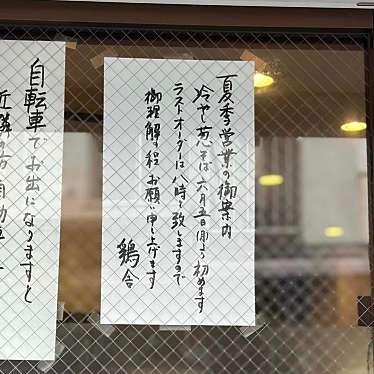 夏季営業の御案内
冷やし葱そば六月五日(月)より初めます
ラストオーダーは八時と致しますので
御理解の程お願い申し上げます
鶏舎
自転車でお出になりますと
近隣の方